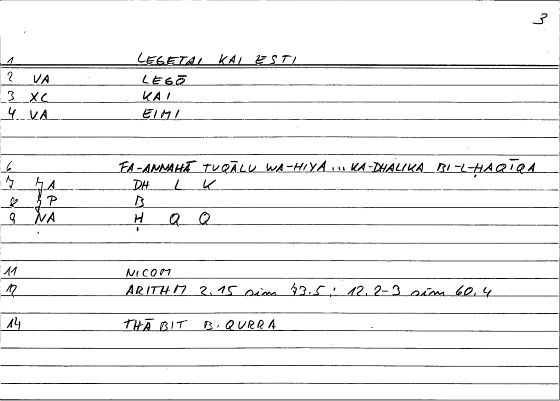 3
1 LEGETAI KAI ESTI
2 VA LEGŌ
3 XC KAI
4 VA EIMI
6 FA-ANNAHĀ TUQĀLU WA-HIYA ... KA-DHALIKA BI-L-ḤAQĪQA
7 A DH L K
8 P B
9 NA Ḥ Q Q
11 NICOM
12 ARITHM 2.15 sim 43.5; 12.2-3 sim 60.4
14 THĀBIT B. QURRA